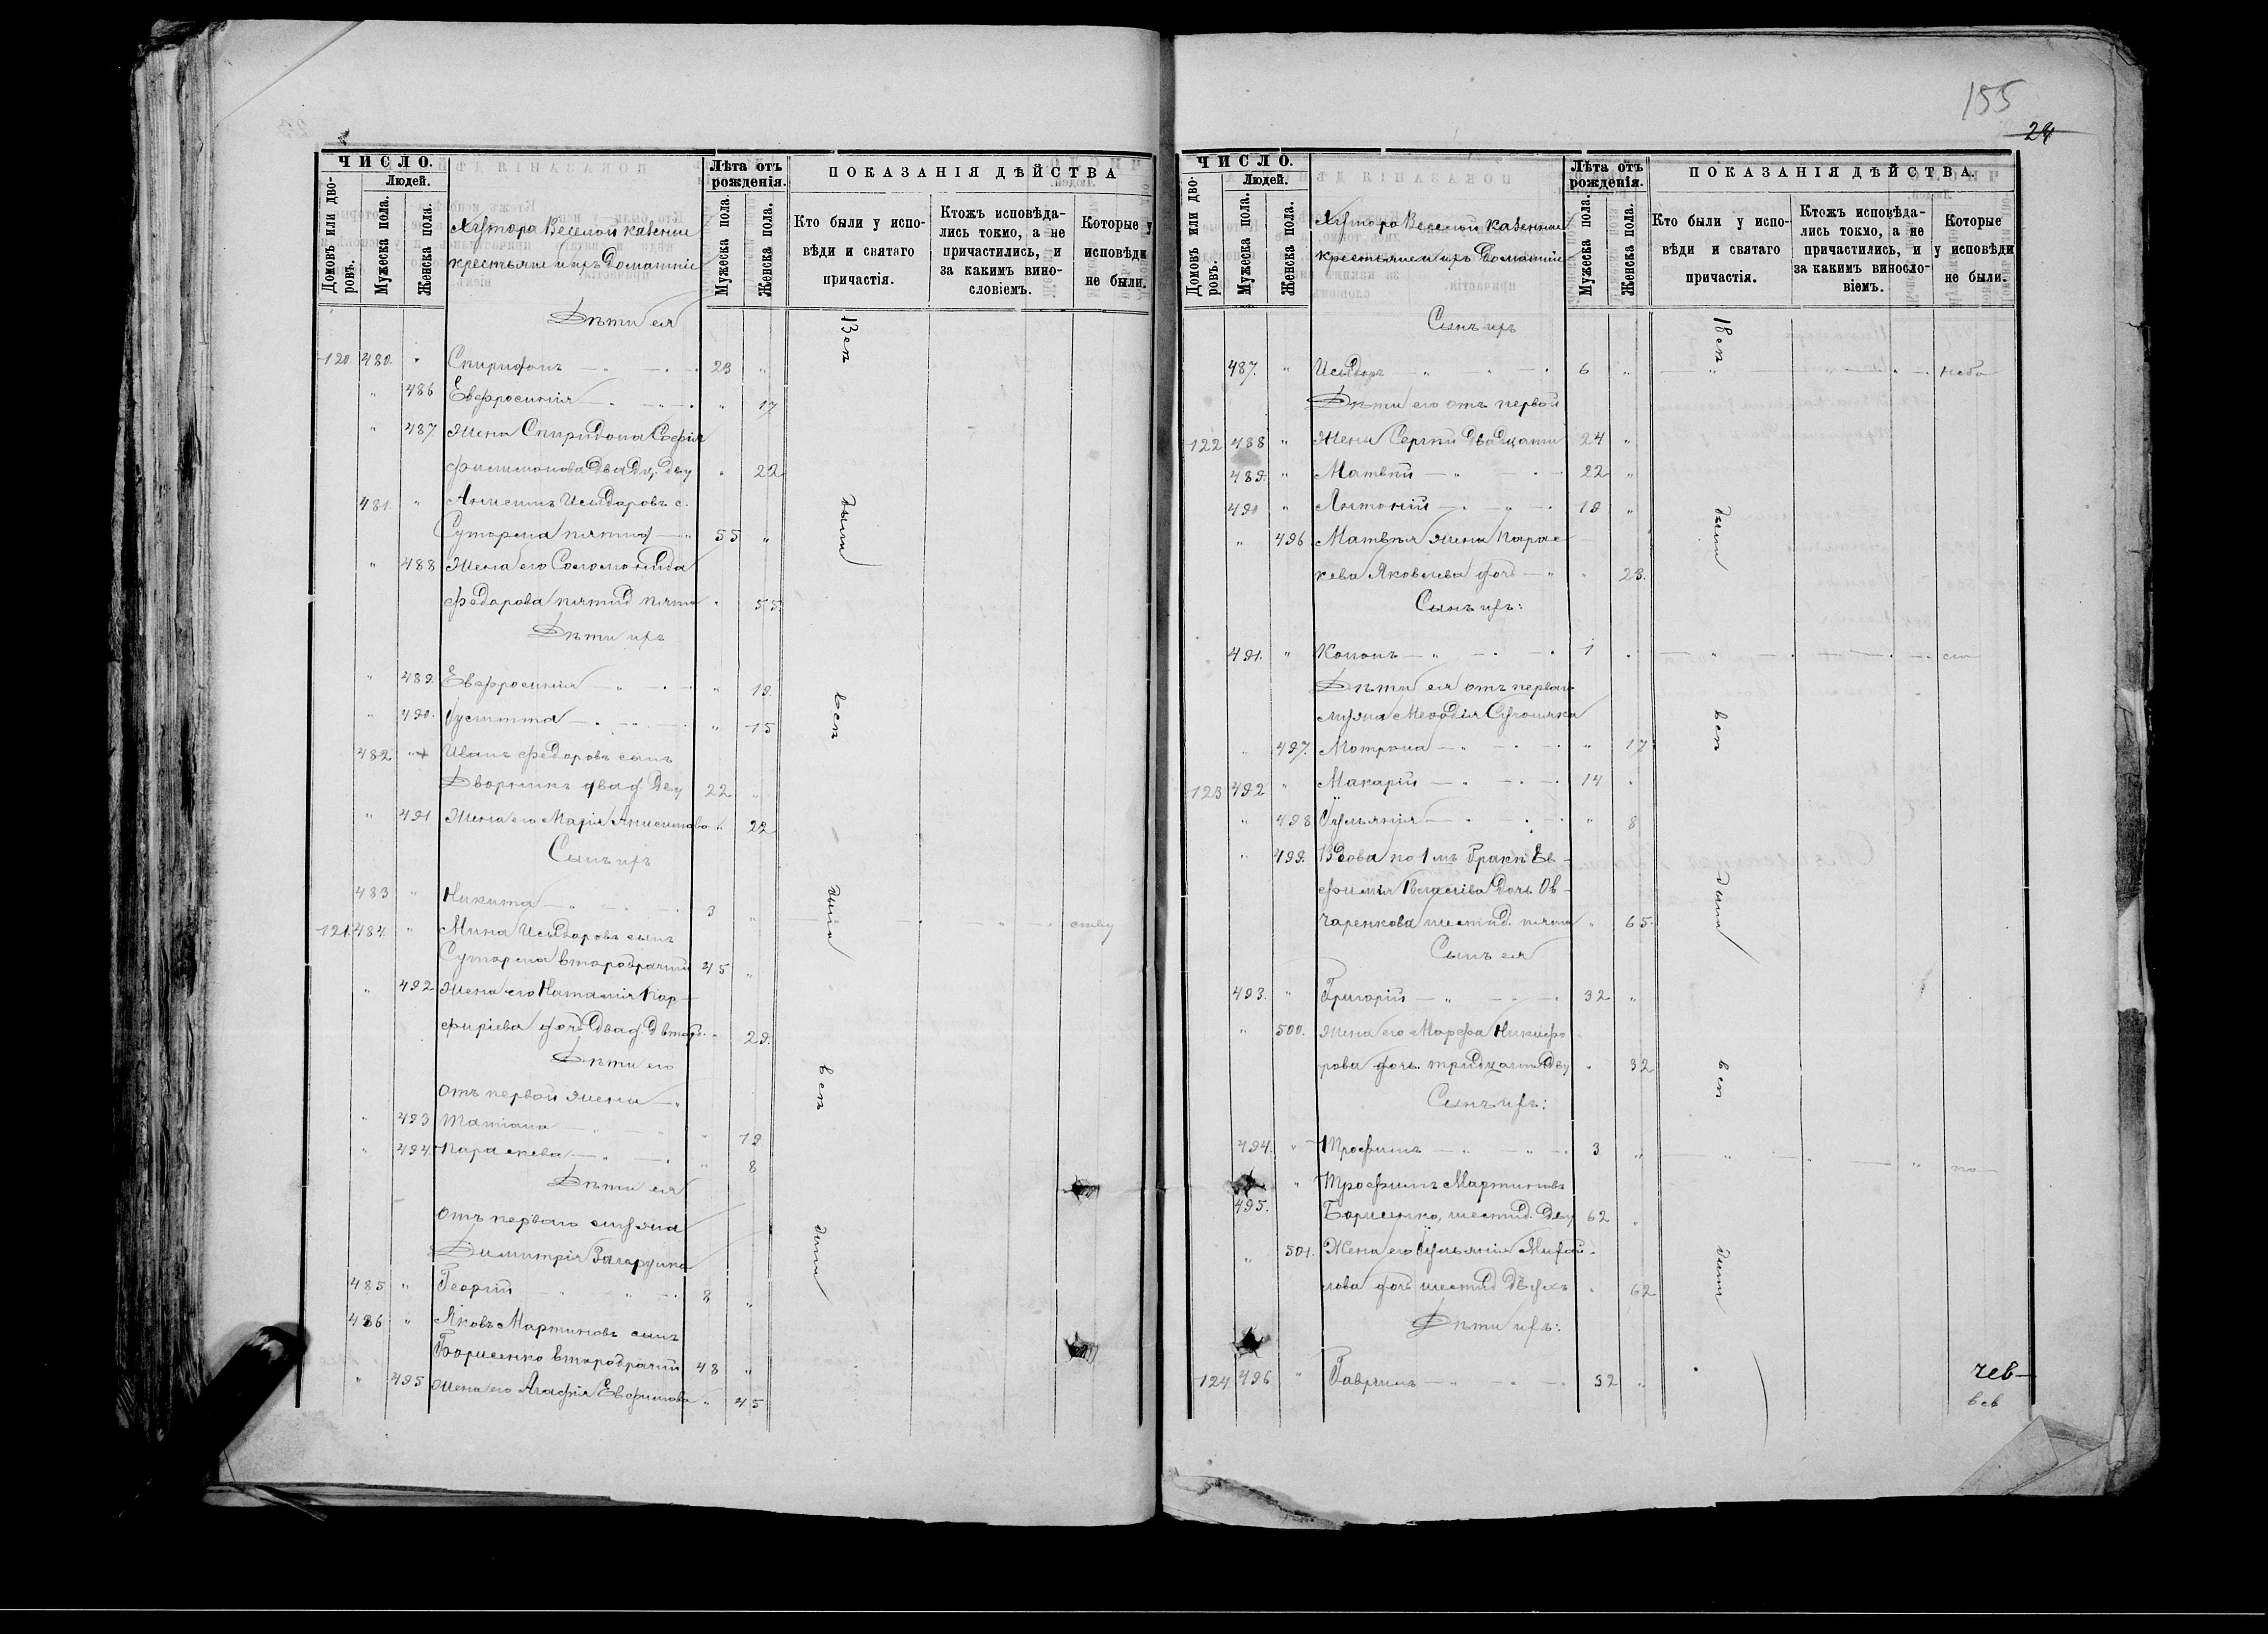 155
24
ЧИСЛО.
Людей.
Домовъ или дворовъ.
Мужеска пола.
Женска пола.
Хутора Веселой казенные
крестьяне и ихъ домашніе
Лѣта отъ рожденія.
Мужеска пола.
Женска пола.
ПОКАЗАНІЯ ДѢЙСТВА
Кто были у исповѣди и святаго причастія.
Ктожъ исповѣдались токмо, а не причастились, и за какимъ винословіемъ.
Которые у исповѣди не были.
Дѣти ея
120 480. " Спиридонъ — " — 23 "
" 486 Евфросинія — " — " 17
" 487 Жена Спиридона Софія
Филимонова двадц. дву " 22
481. " Анисимъ Исыдоровъ с.
Суторма пятид — " 55 "
" 488 Жена его Соломонида
Федорова пятид пяти " 55
Дѣти ихъ
" 489. Евфросинія — " — " 19.
" 490. — " — " 15
482 " + Иванъ Федоровъ сынъ
Дворникъ двад. дву 22 "
" 491 Жена его Марія Анисимова " 22
Сынъ ихъ
483 " Никита — " — 3 "
121. 484. " Мина Исыдоровъ сынъ
Суторма второбрачный 45 "
" 492 Жена его Наталія Пор-
фиріева дочь " 29.
Дѣти его
отъ первой жены — "
" 493 Татіана — " — " 19
" 494. Параскева — " — " 8
Дѣти ея
отъ перваго мужа
Димитрія
485 " Георгій — " — 8 "
486 " Яковъ Мартиновъ сынъ
Борисенко второбрачный 48 "
" 495 Жена его Агафія Евфимова " 45
Всѣ были всѣ были всѣ были
ЧИСЛО.
Людей.
Домовъ или дворовъ.
Мужеска пола.
Женска пола.
Хутора Веселой казенные
крестьяне и ихъ домашніе
Лѣта отъ рожденія.
Мужеска пола.
Женска пола.
ПОКАЗАНІЯ ДѢЙСТВА.
Кто были у исповѣди и святаго причастія.
Ктожъ исповѣдались токмо, а не причастились, и за какимъ винословіемъ.
Которые у исповѣди не были.
Сынъ ихъ
487. " Исыдоръ — " — 6 "
Дѣти его отъ первой
122 488 " жены Сергій двадцати 24 "
489. " Матвѣй — " — 22 "
490 " Антоній — " — 19 "
" 496 Матвѣя жена Парас-
кева Яковлева доч — " " 23.
Сынъ ихъ:
491. " Кононъ — " — 1 "
Дѣти ея отъ перваго
мужа Меѳодія
" 497. Мотрона — " — " 17
123 492 " Макарій — " — 14 "
" 498 Ѵульянія — " — " 8
" 499. Вдова по 1 мъ бракѣ Ев-
фимія дочь Ов-
чаренкова шестид. пяти " 65.
Сынъ ея
493. " Григорій — " — 32 "
" 500. Жена его Марфа Никифо-
рова дочь тридцати дву " 32
Сынъ ихъ:
494. " Трофимъ — " — 3 "
" Трофимъ Мартиновъ
495. Борисенко, шестид. дву 62 "
" 501. Жена его Ѵульянія Михай-
лова дочь шестид двухъ " 62
Дѣти ихъ:
124 496 " Гавріилъ — " — 32 "
Всѣ были всѣ были всѣ были